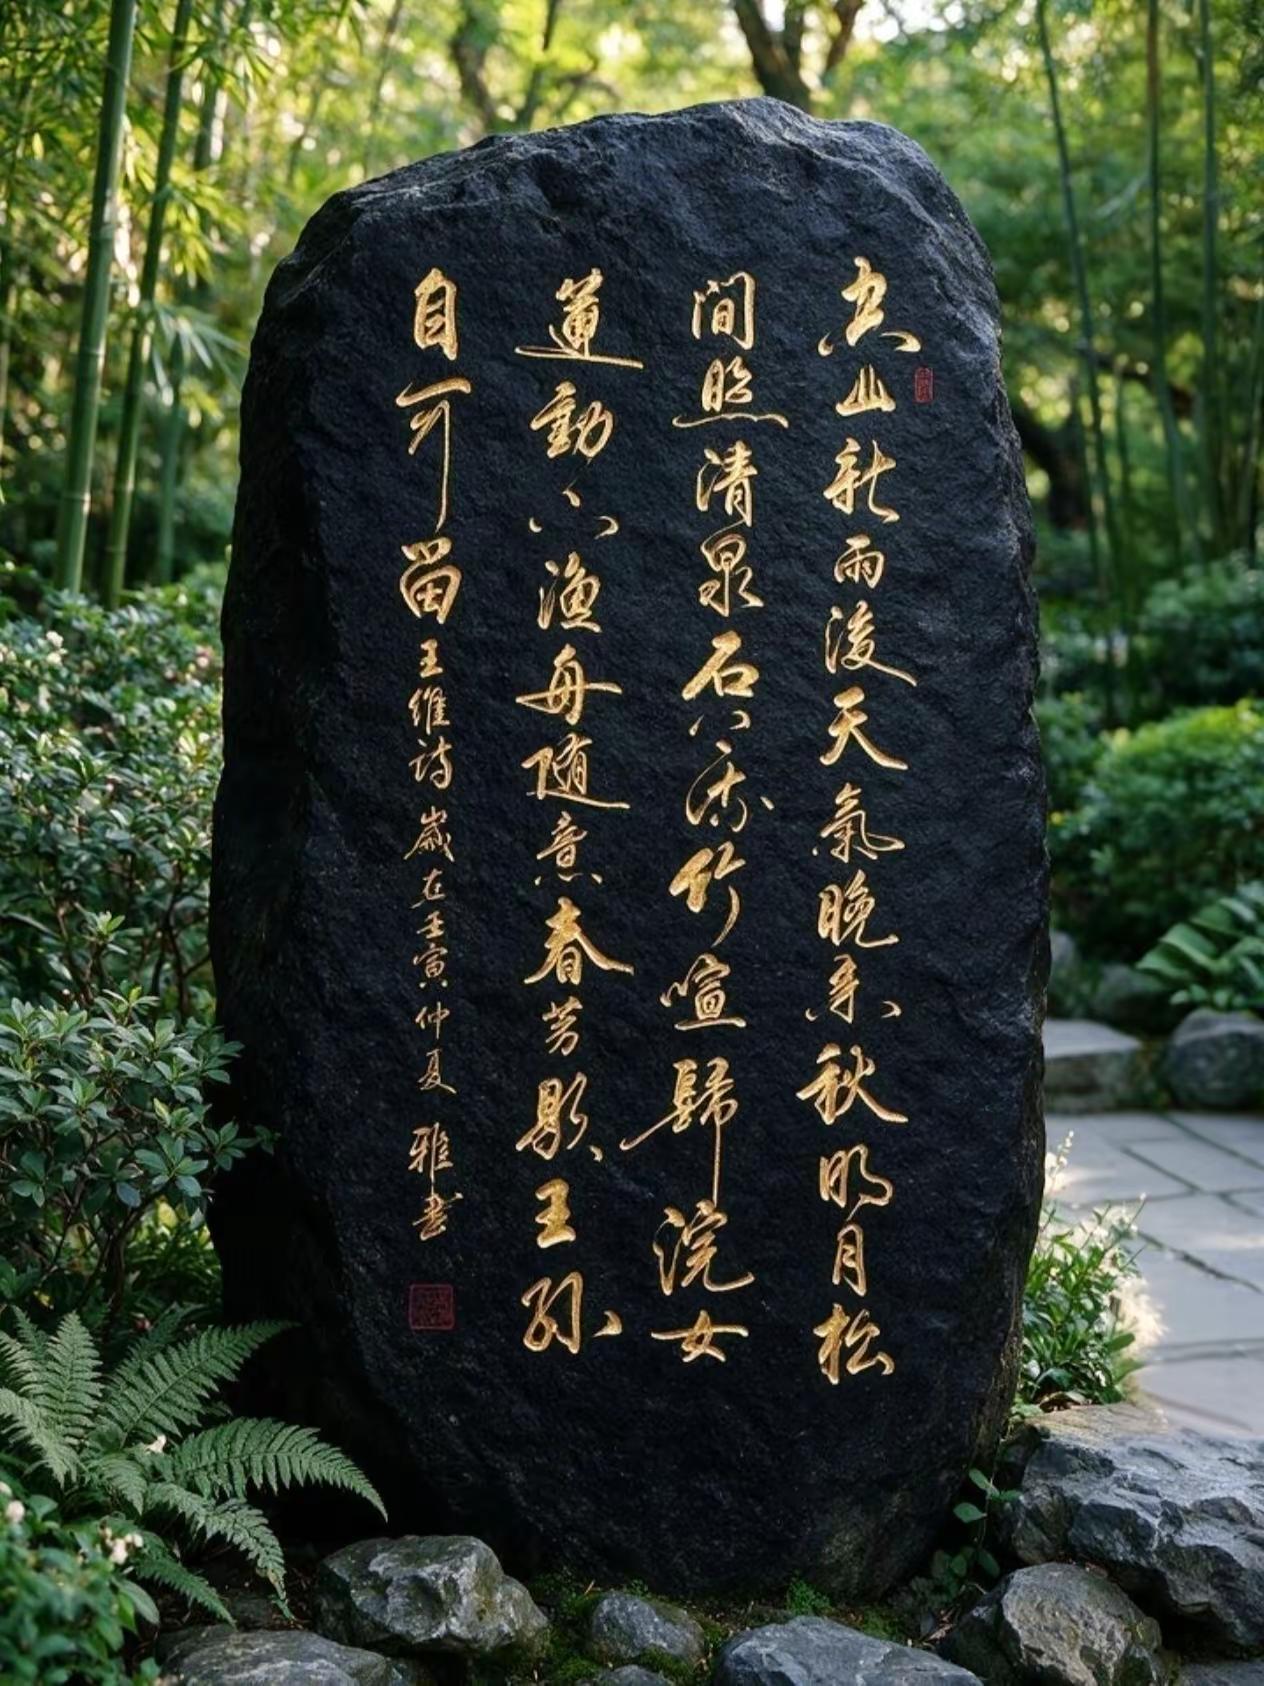 空山新雨後天氣晚來秋明月松
間照清泉石上流竹喧歸浣女
蓮動下漁舟随意春芳歇王孫
自可留 王維詩 歲在壬寅仲夏 雅書